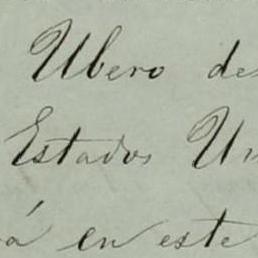 Ubero de
Estados Un
á en este